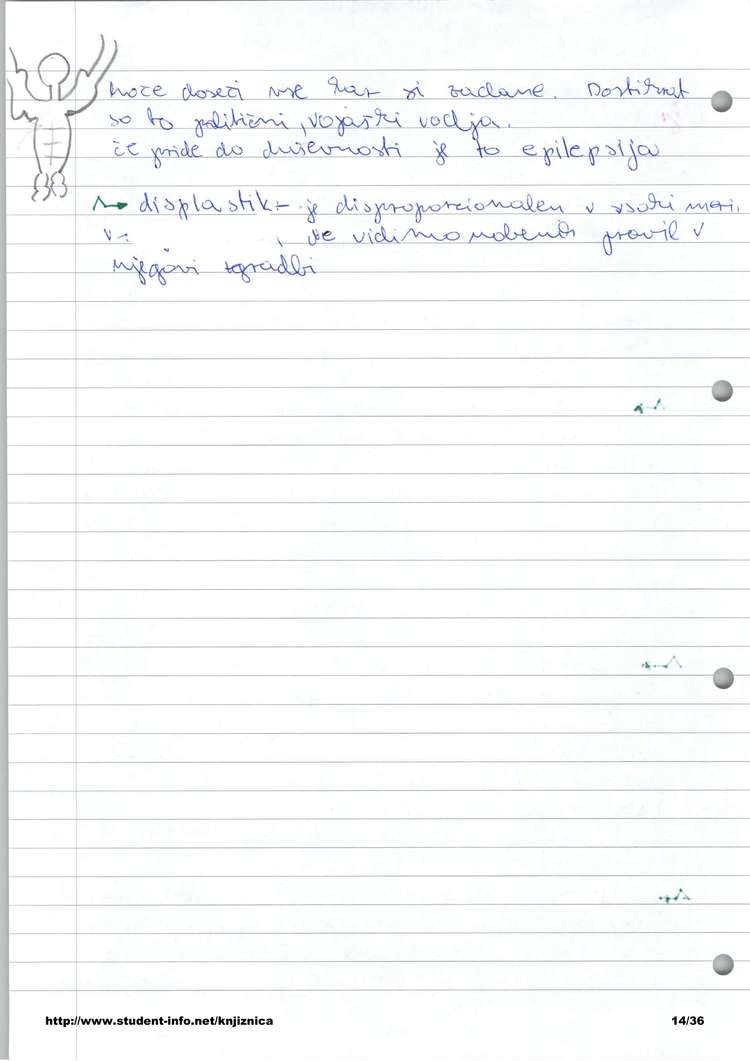 hoče doseči vse kar si zadane. Dostikrat
so to politični, vojaški vodja.
če pride do duševnosti je to epilepsija
displastik - je disproporcionalen v vsaki meri,
ne vidimo nobenih pravil v
njegovi zgradbi
http://www.student-info.net/knjiznica
14/36